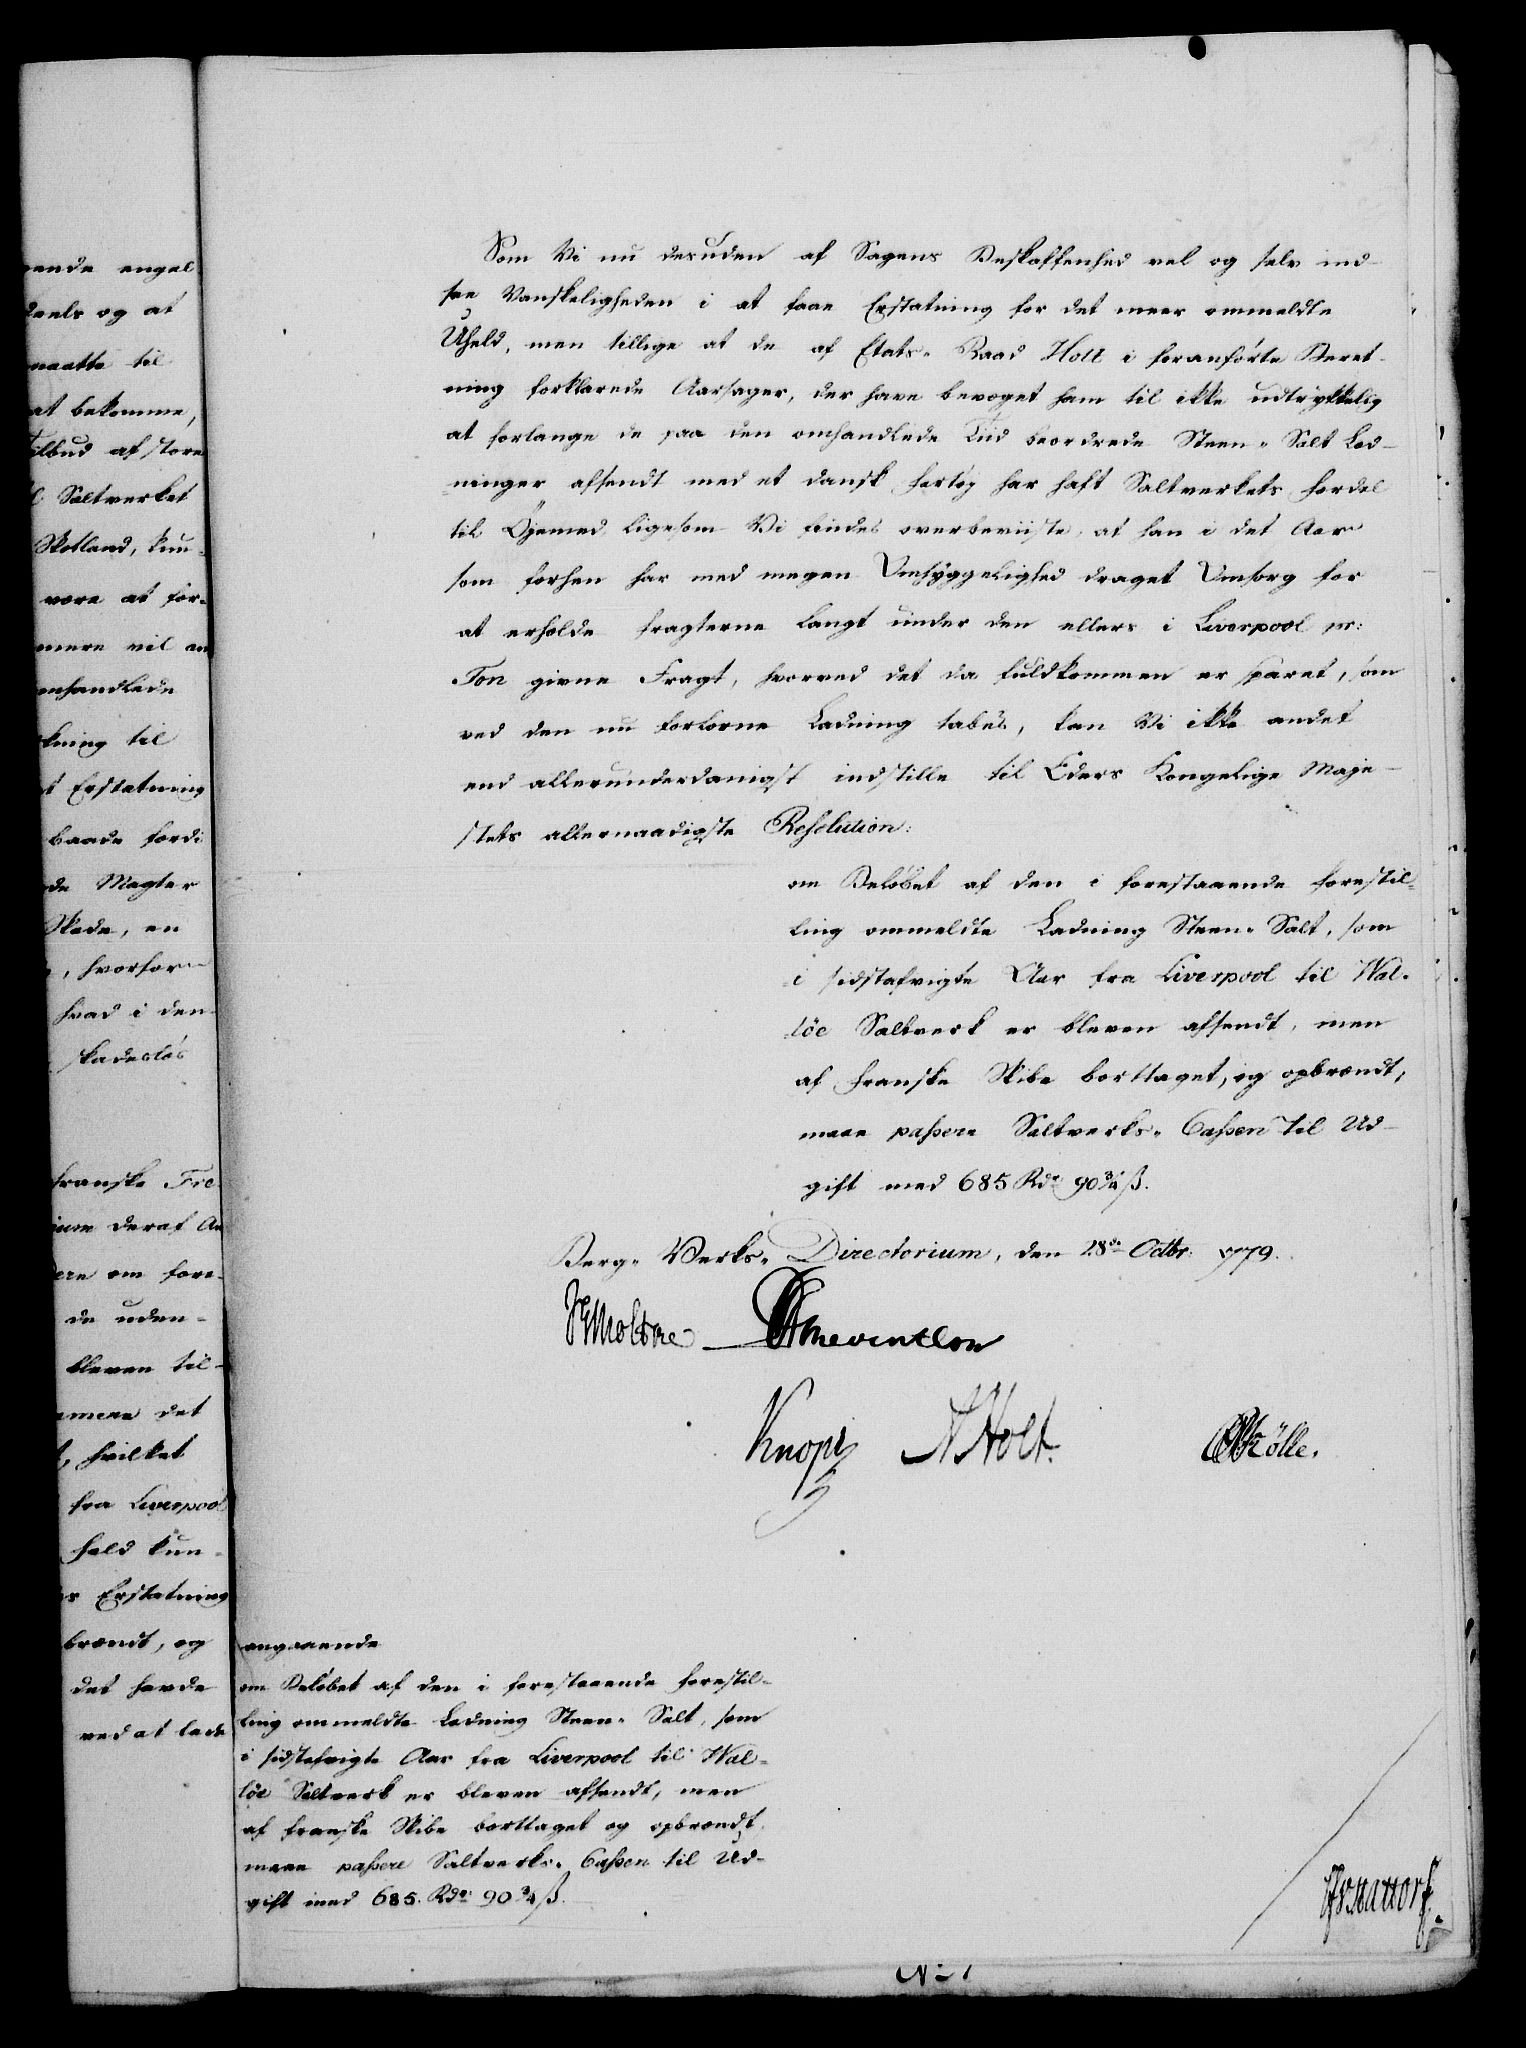 ende engel
deels og at
maatte til
at bekomme,
Tilbud af store
Saltverket
Skotland, kun-
være at for-
mere vil an
omhandlede
kning til
t Erstatning
baade fordi
de Magter
Skade, en
, hvorfor
hvad i den
skadeslös
franske Fre
deraf An
ere om fore-
de uden-
bleven til-
det
, hvilket
fra Liverpool
held kun-
Erstatning
brændt, og
det havde
ved at lade
Som Vi nu desuden af Sagens Beskaffenhed vel og selv ind-
see Vanskeligheden i at faae Erstatning for det meer ommeldte
Uheld, men tillige at de af Etats-Raad Holt i foranförte Beret-
ning forklarede Aarsager, der have bevæget ham til ikke udtrykkelig
at forlange de paa den omhandlede Tiid beordrede Steen-Salt Lad-
ninger afsendt med et dansk Fartöy har haft Saltverkets Fordel
til Öyemed, ligesom Vi findes overbeviiste, at han i det Aar
som forhen har med megen Omhyggelighed draget Omsorg for
at erholde Fragterne langt under den ellers i Liverpool pr:
Ton givne Fragt, hvorved det da fuldkommen er sparet, som
ved den nu forlorne Ladning tabes, kan Vi ikke andet
end allerunderdanigst indstille til Eders Kongelige Maje-
stets allernaadigste Resolution:
om Belöbet af den i forestaaende Forestil-
ling ommeldte Ladning Steen-Salt, som
i sidstafvigte Aar fra Liverpool til Wal-
löe Saltverk er bleven afsendt, men
af Franske Skibe borttaget, og opbrændt,
maae passere Saltverks-Cassen til Ud-
gift med 685 Rdr 90 3/4 ß.
Berg-Verks-Directorium, den 28de Octbr: 1779.
Moltke Reventlow
Knoph Holt Rölle.
angaaende
om Belöbet af den i forestaaende Forestil-
ling ommeldte Ladning Steen-Salt, som
i sidstafvigte Aar fra Liverpool til Wal-
löe Saltverk er bleven afsendt, men
af franske Skibe borttaget og opbrændt,
maae passere Saltverks-Cassen til Ud-
gift med 685. Rdr 90 3/4 ß.
No 1